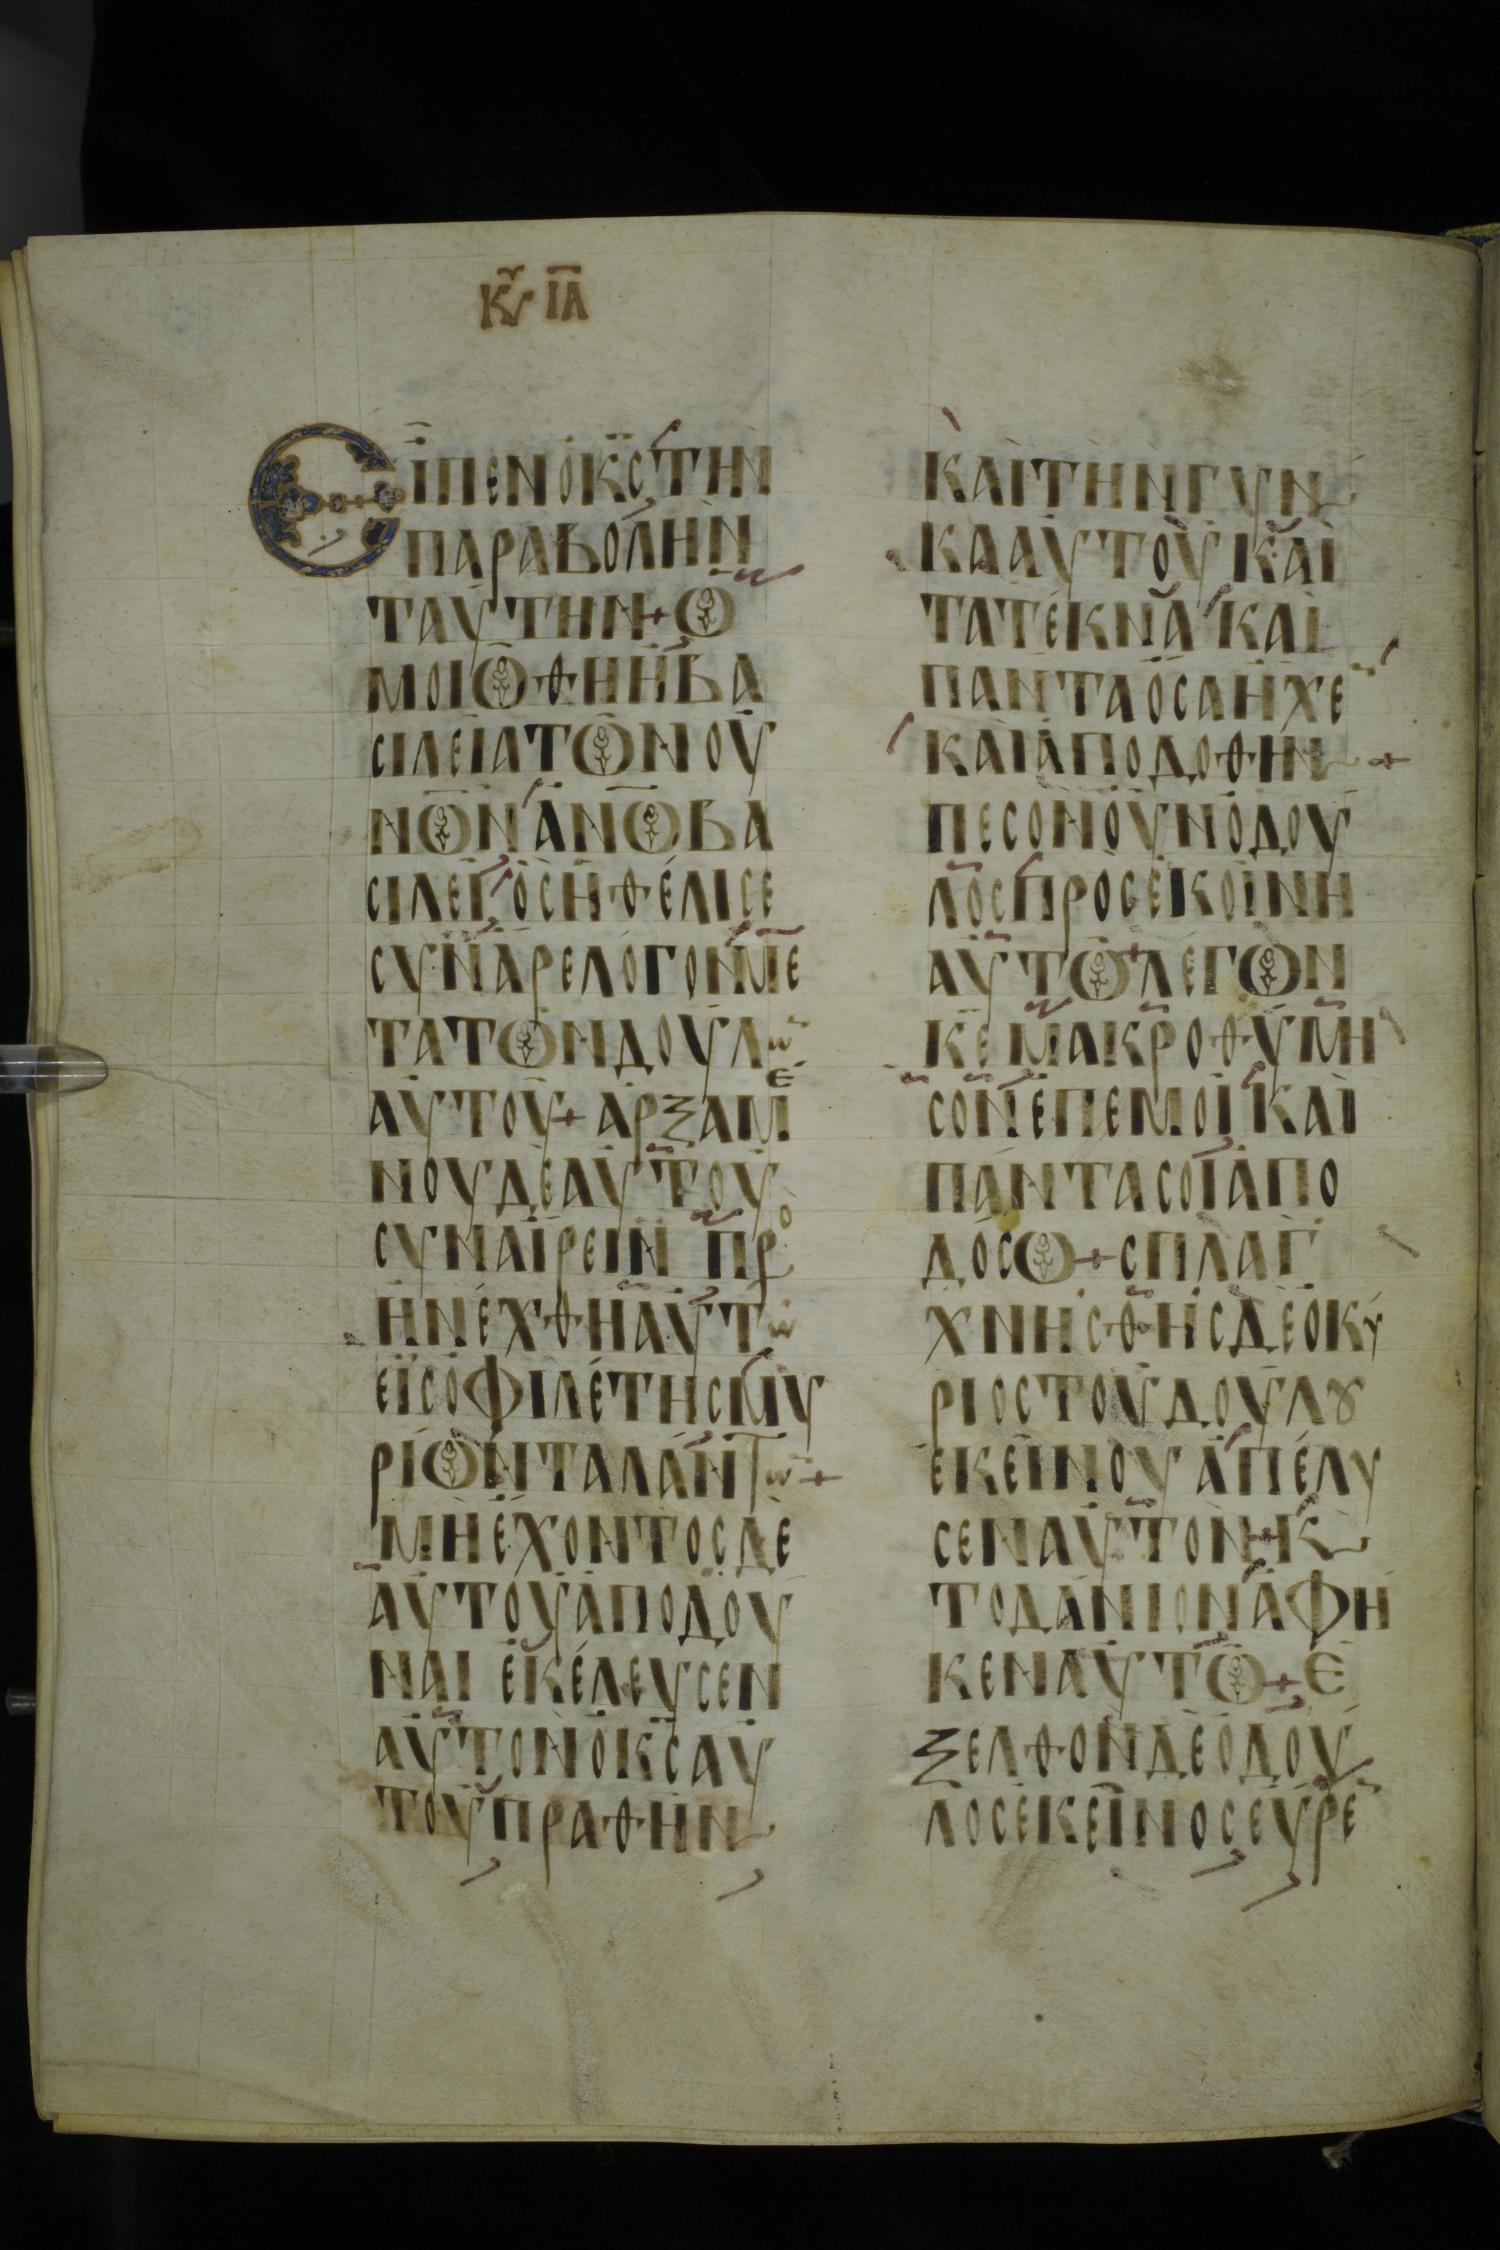 Κυ ΙΑ
Εἶπεν ὁ κ̅ς̅ τὴν
παραβολὴν
ταύτην + ὡ
μοιώθη ἡ βα
σιλεία τῶν οὐ
νῶν ἀνω βα
σιλεῖ ὃς ἠθέλισε
συνᾶρε λόγον με
τὰ τῶν δούλω
αὐτοῦ + ἀρξαμε
νου δὲ αὐτοῦ
συναίρειν προ
ηνέχθη αὐτω
εἷς ὀφιλέτης μυ
ρίων ταλάντω +
μὴ ἔχοντος δὲ
αὐτοῦ ἀποδοῦ
ναι ἐκέλευσεν
αὐτὸν ὁ κ̅ς̅ αὐ
τοῦ πραθῆν
καὶ τὴν γυν
κα αὐτοῦ καὶ
τὰ τέκνα καὶ
πάντα ὅσα ἦχε
καὶ ἀποδοθῆν +
πεσὸν οὖν ὁ δοῦ
λος προσεκοίνη
αὐτῶ + λέγων
κ̅ε̅ μακροθύμη
σον ἐπ ἐμοὶ καὶ
πάντα σοὶ ἀπο
δόσω + σπλαγ
χνησθῆς δὲ ὁ κύ
ριος τοῦ δούλου
ἐκείνου ἀπέλυ
σεν αὐτὸν + κ
τὸ δάνιον ἀφῆ
κεν αὐτῶ + ἐ
ξελθον δὲ ὁ δοῦ
λος ἐκεῖνος εὗρε